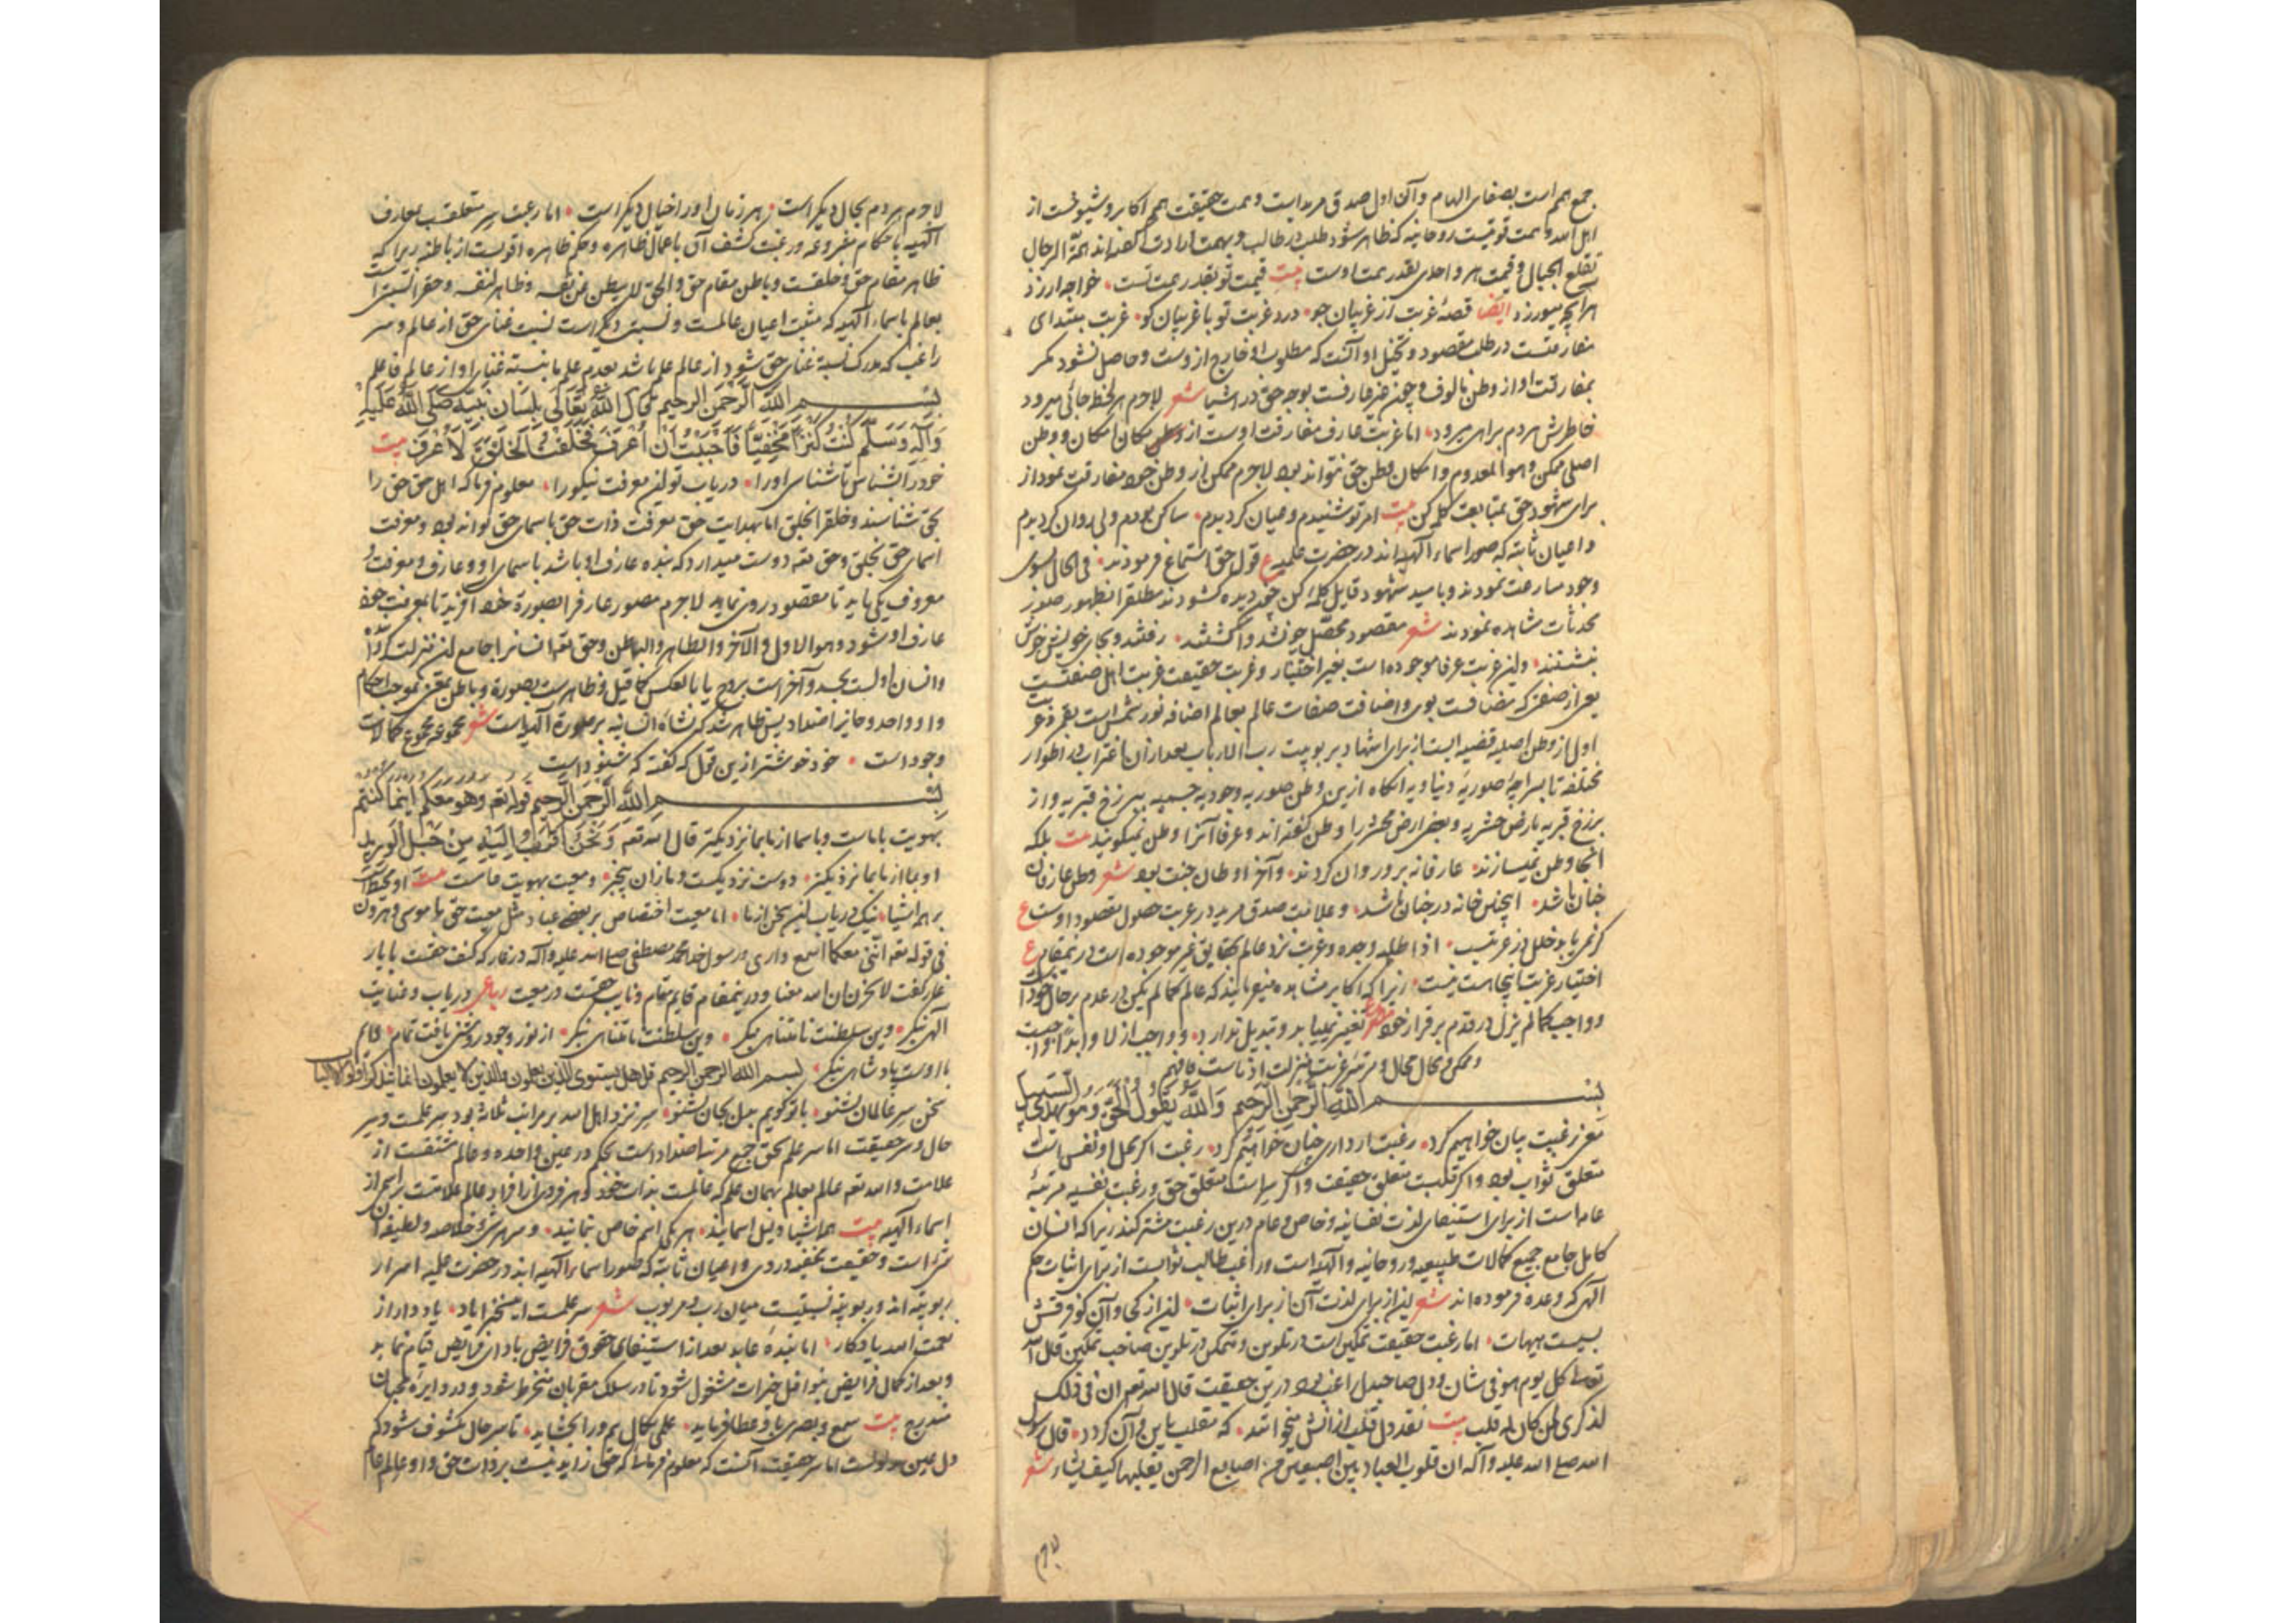 جمع همم است بصفای الهام وآن اول صدق مریدست وهمت حقیقت همم اکابر وشیوخست از
اهل الله وهمت قوتیست روحانیه که ظاهر شود طلب در طالب وبهمت ارادت گفته‌اند همة الرجال
تقلع الجبال وقیمت هر واحدی بقدر همت اوست بیت قیمت تو بقدر همت تست خواجه ارزد
هرآنچه میورزد ایضا قصهٔ غربت از غریبان جو درد غربت تو با غریبان گو غربت مبتدای
مفارقتست در طلب مقصود وتخیل او آنست که مطلوب او خارج از وست وحاصل نشود مگر
بمفارقت او از وطن مالوف وچون عارفست بوجه حق در اشیا شعر لاجرم هر لحظه جائی میرود
خاطرش هر دم براهی میرود اما غربت عارف مفارقت اوست از وطن مکان امکان ووطن
اصلی ممکن وهو المعدوم وامکان وطن حق نتواند بود لاجرم ممکن از وطن خود مفارقت نمود از
برای شهود حق بمتابعت کلمه کن بیت امر تو شنیدیم وعیان گردیدیم ساکن بودیم ولی روان گردیدیم
واعیان ثابته که صور اسماء الهیه‌اند در حضرت علمیه ع قول حق استماع فرمودند فی الحال سوی
وجود مسارعت نمودند وبامید شهود قایل کلمهٔ کن چون دیده گشودند مطلقا بظهور صور
محدثات مشاهده نمودند شعر مقصود محصل چو نشد واگشتند رفتند وبجای خویش خوش
بنشستند واین غربت عرفا موجوده است بغیر اختیار وغربت حقیقت غربت اهل صفتست
یعنی از صفتی که مضافست بوی واضافت صفات عالم بعالم اضافه نور شمس است بقمر وغربت
اول از وطن اصلیه قضیه ایست از برای اشهاد بربوبیت رب الارباب بعد از آن اغتراب در اطوار
مختلفه تا بسراچهٔ صوریهٔ دنیاویه آنگاه ازین وطن صوریه وجودیه جسمیه ببرزخ قبریه واز
برزخ قبریه بارض حشریه وبعضی ارض محشر را وطن گفته‌اند وعرفا آنرا وطن نمیگویند بیت بلکه
آنجا وطن نمیسازند عارفانه برو روان گردند وآخر اوطان جنت بود شعر وطن عارفان
جنان باشد اینچنین خانه در جنان باشد وعلامت صدق مرید در غربت حصول مقصود اوست ع
گر نمی‌یابد خلل در غربتست اذا طلبه وجده وغربت نزد عالم بحقایق غیر موجوده است درینمقام ع
اختیار غربت اینجا است نیست زیرا که اکابر مشاهده میفرمایند که عالم کما لم یکن در عدم برحال خود است
وواجب کما لم یزل در قدم برقرار خود مصرع تغییر نمییابد وتبدیل ندارد وواجب ازلا وابدا واجبت
وممکن ومحال محال ومرتبهٔ غربت منزلت ادناست فافهم
بسم الله الرحمن الرحیم والله یقول الحق وهو یهدی السبیل
مغز رغبت بیان خواهیم کرد رغبت ار داری چنان خواهیم کرد رغبت اگر محل او نفس است
متعلق ثواب بود واگر قلبست متعلق حقیقت واگر سر است متعلق حق ورغبت نفسیه مرتبهٔ
عامه است از برای استیفای لذت نفسانیه وخاص وعام درین رغبت مشترکند زیرا که انسان
کامل جامع جمیع کمالات طبیعیه وروحانیه والهیه است وراغب طالب ثوابست از برای اثبات حکم
الهی که وعده فرموده‌اند شعر این از برای لذت آن از برای اثبات این از کجا وآن کو فرقش
بسیست هیهات اما رغبت حقیقت تمکین است در تلوین ومتمکن در تلوین صاحب تمکین قال الله
تعالی کل یوم هو فی شان ودل صاحبدل راغب بود درین حقیقت قال الله تعالی ان فی ذلک
لذکری لمن کان له قلب بیت نقد دل قلب از آنش میخوانند که مقلب باین وآن گردد قال رسول
الله صلی الله علیه وآله ان قلوب العباد بین اصبعین من اصابع الرحمن یقلبها کیف یشاء شعر
لاجرم
لاجرم هر دم بحال دیگر است هر زمان او را خیال دیگر است اما رغبت سر متعلقست بمعارف
الهیه باحکام مشروعه ورغبت کشف آن باعمال ظاهره وحکم ظاهره اقویست از باطنه زیرا که
ظاهر مقام حق وخلقست وباطن مقام حق والحق لا یبطن عن نفسه وظاهر لنفسه وحق را نسبتی است
بعالم باسماء الهیه که مثبت اعیان عالمست ونسبتی دیگر است نسبت غنای حق از عالم وسر
راغب که مدرک نسبة غنای حق شود از عالم علم باشد بعدم علم بانسبته غنای او از عالم فاعلم
بسم الله الرحمن الرحیم قال الله تعالی بلسان نبیه صلی الله علیه
وآله وسلم کنت کنزا مخفیا فاحببت ان اعرف فخلقت الخلق لاعرف بیت
خود را بشناس تا شناسی او را دریاب تو این معرفت نیکو را معلوم فرما که اهل حق حق را
بحق شناسند وخلق را بخلق اما بهدایت حق معرفت ذات حق باسمای حق تواند بود ومعرفت
اسمای حق بخلق وحق تعالی دوست میدارد که بنده عارف او باشد باسمای او وعارف ومعرفت و
معروف یکی باید تا مقصود روی نماید لاجرم مصور عارف را بصورة خود آفرید تا بمعرفت خود
عارف او شود وهو الاول والآخر والظاهر والباطن وحق تعالی انسان را جامع این منزلت گردانیده
وانسان اولست بجسد وآخر است بروح یا بالعکس کما قیل وظاهر است بصورة وباطن بمعنی بموجب احکام
واو واحد وجامع اضداد پس ظاهر شد که نشاهٔ انسانیه برصورة الهیه است شعر مجموعه مجموع کمالات
وجود است خود خوشتر ازین قول که گفته که شنود است
بسم الله الرحمن الرحیم قوله تعالی وهو معکم اینما کنتم
بهویت باماست وباسما از ما بما نزدیکتر قال الله تعالی ونحن اقرب الیه من حبل الورید
او بما از ما بما نزدیکتر دوست نزدیکست وما زان بیخبر ومعیت بهویت ماست بیت او محیط است
بر همه اشیا نیک دریاب این سخن از ما اما معیت اختصاص بر بعضی عباد مثل معیت حق با موسی وهرون
فی قوله تعالی اننی معکما اسمع واری ورسول خدا محمد مصطفی صلی الله علیه وآله در غار که گفت حقست با یار
غار گفت لا تحزن ان الله معنا ودرینمقام قایم مقام ونایب حقست در معیت رباعی دریاب وعنایت
الهی بنگر وین سلطنت نامتناهی بنگر وین سلطنت نامتناهی بنگر از نور وجود روشنی یافت تمام قایم
با اوست پادشاهی بنگر بسم الله الرحمن الرحیم قل هل یستوی الذین یعلمون والذین لا یعلمون انما یتذکر اولوا الالباب
سخن سر عالمان بشنو با تو گویم بدل بجان بشنو سر نزد اهل الله بر مراتب ثلاثه بود سر علمست وسر
حال وسر حقیقت اما سر علم بحق جمع مرتبهٔ اضداد است بحکم در عین واحده وعالم مشتقست از
علامت والله تعالی عالم بعالم بهمان علم که عالمست بذات خود وهر فردی از افراد عالم علامت بر اسمی از
اسماء الهیه بیت همه اشیا دلیل اسمایند هر یکی اسم خاص بنمایند وسر هر شی خلاصه ولطیفهٔ
شی است وحقیقت مخفیه در وی واعیان ثابته که صور اسماء الهیه‌اند در حضرت علمیه اسرار
ربوبیته‌اند وربوبیته نسبتیست میان رب ومربوب شعر سر علمست یاد دار از
نعمت الله یادگار اما بندهٔ عابد بعد از استیفای حقوق فرایض باداى فرایض قیام نماید
وبعد از کمال فرایض بنوافل خیرات مشغول شود تا در سلک مقربان منخرط شود ودر دایرهٔ محبان
مندرج بیت سمع وبصری باو عطا فرماید علمی بکمال هم ورا بخشاید تا سر حال مکشوف شود که
دل عین اوست اما سر حقیقت آنست که معلوم فرماید که حق زاید نیست بر ذات حق واو عالم